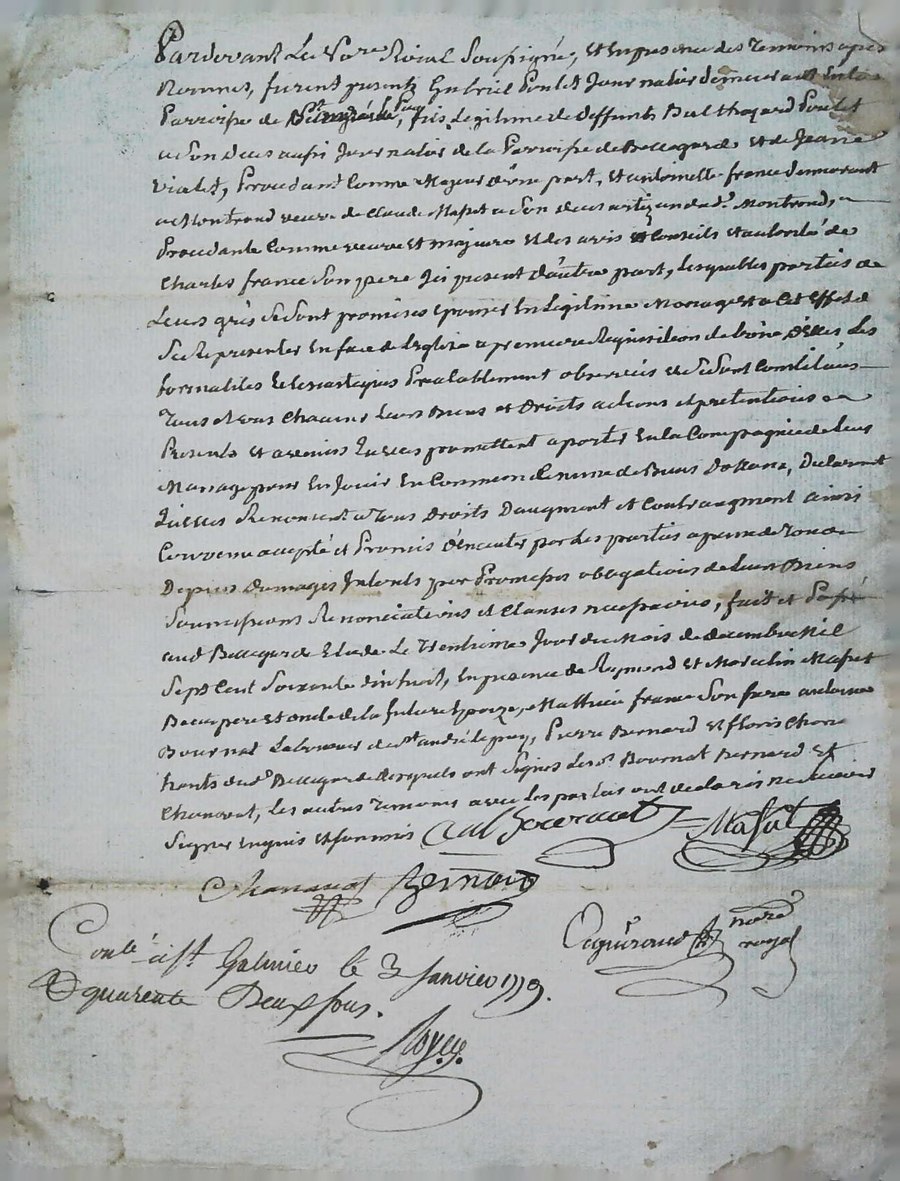 Pardevant Le Nore Roial Sousigné, et En presence des Temoins apres
Nommés, furent presents Gabriel Poulet Journalier demeurant En la
Parroisse de St andré le puy, fils Legitime de deffunts Balthazard Poulet
a Son Deces aussi Journalier de la Parroisse de Bellegarde et de Jeanne
Vialet, Procedant Comme Majeur d'une part, Et antoinette france demeurant
a Montrond veuve de Claude Masset a Son deces artizan dud. Montrond,
Procedante Comme veuve et majeure et des avis et Conseils et authorité de
Charles france Son pere Ici present d'autre part, Lesquelles parties de
Leurs grés Se Sont promises Epouser En Legitime Mariage et a Cet Effet de
Se Representer En face de L'eglise a premiere Requisition de L'une d'elles Les
formalités Eclesiastiques Prealablement observeés et Se Sont Constitués
Tous et uns Chacuns Leurs Biens et Droits actions et pretentions
Presents et avenirs Lesquels promettent aporter En la Compagnie de Leur
Mariage pour En Jouir En Commun de nature de Biens Dottaux, Declarant
qu'elles Renoncent a Tous Droits D'augment et Contraugment ainsi
Convenu accepté et Promis d'Executer par Les parties a peine de Tous
Depens Domages Interets par Promesses obligations de Leurs Biens
Soumissions Renonciations et Clauses necessaires, fait et Passé
aud Bellegarde Etude Le Trentieme Jour du Mois de decembre Mil
Sept Cent Soixante dixhuit, En presence de Raymond Et Marcelin Masset
Beaupere et oncle de la future Epouze, Mathieu france Son frere antoine
Bournat Laboureur de St andré le puy, Pierre Bernard et floris Chana
vants dud. Bellegarde desquels ont Signés Les Sr. Bournat Bernard Et
Chanavat, Les autres Temoins avec Les parties ont declarés ne Scavoir
Signer Enquis et Sommés
Bournat Massat
Chanavat Bernard
notre
royal
Conlé a St Galmier le 3 Janvier 1779.
R quarente Deux sous.